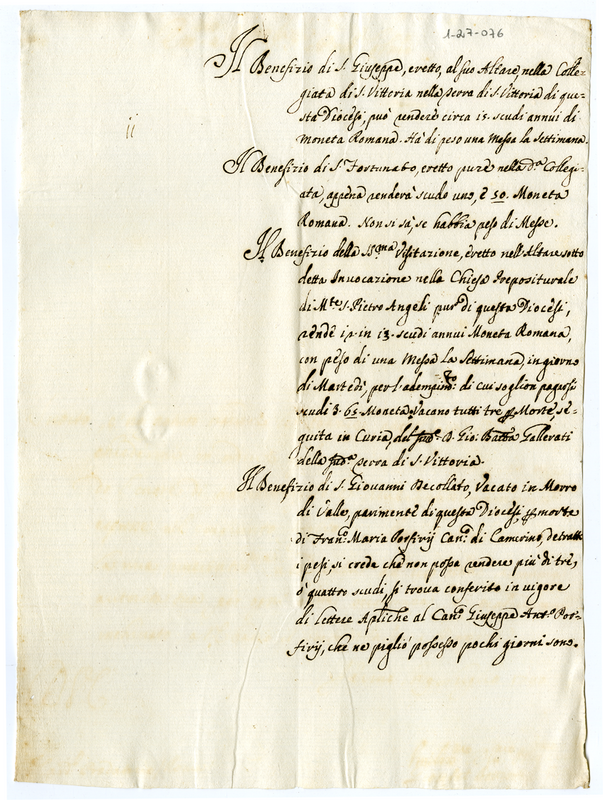 1-27-076
Il Benefizio di S. Giuseppe, eretto, al suo Altare, nella Colle-
giata di S. Vittoria nella Terra di S. Vittoria di que-
sta Diocesi, può rendere circa 15. scudi annui di
moneta Romana. Ha di peso una Messa la Settimana.
Il Benefizio di S. Fortunato, eretto pure nella d.a Collegi-
ata, appena renderà scudo uno, e 50. Moneta
Romana. Non si sà, se habbia peso di Messe.
Il Benefizio della SS.ma Visitazione, eretto nell'Altare sotto
detta Invocazione nella Chiesa Prepositurale
di M.te S. Pietro Angeli pur di questa Diocesi,
rende 12. in 13. scudi annui Moneta Romana,
con peso di una Messa la Settimana, in giorno
di Martedì, per l'adempim.to di cui soglion pagarsi
scudi 3. 65. Moneta. Vacano tutti tre p Morte, se-
guita in Curia, del sud.o D. Gio: Batta Gallerati
della sud.a Terra di S. Vittoria.
Il Benefizio di S. Giovanni Decollato, Vacato in Morro
di Valle, parimente di questa Diocesi, p morte
di Fran.o Maria Porfirij Can.o di Camerino, detratti
i pesi, si crede che non possa rendere più di trè,
ò quattro scudi, si trova conferito in vigore
di Lettere Apliche al Can.o Giuseppe Ant.o Por-
firij, che ne pigliò possesso pochi giorni sono.